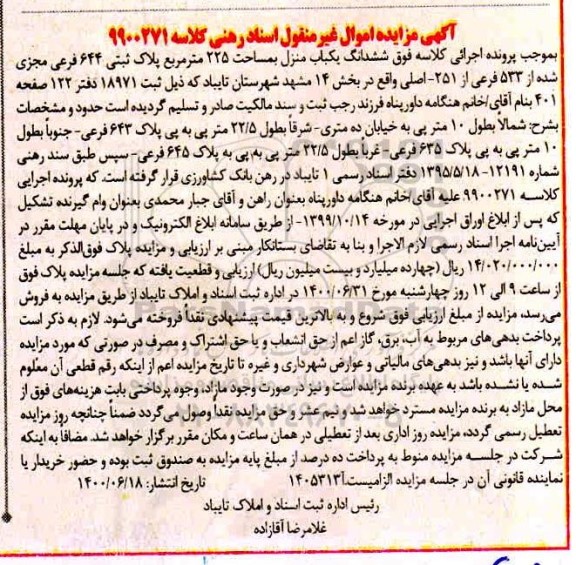 آگهی مزایده اموال غیرمنقول اسناد رهنی کلاسه ۹۹۰۰۲۷۱
بموجب پرونده اجرائی کلاسه فوق ششدانگ یکباب منزل بمساحت ۲۲۵ مترمربع پلاک ثبتی ۶۴۴ فرعی مجزی
شده از ۵۳۳ فرعی از ۲۵۱- اصلی واقع در بخش ۱۴ مشهد شهرستان تایباد که ذیل ثبت ۱۸۹۷۱ دفتر ۱۲۲ صفحه
۴۰۱ بنام آقای/خانم هنگامه داورپناه فرزند رجب ثبت و سند مالکیت صادر و تسلیم گردیده است حدود و مشخصات
بشرح: شمالاً بطول ۱۰ متر پی به خیابان ده متری- شرقاً بطول ۲۲/۵ متر پی به پی پلاک ۶۴۳ فرعی- جنوباً بطول
۱۰ متر پی به پی پلاک ۶۳۵ فرعی- غرباً بطول ۲۲/۵ متر پی به پی به پلاک ۶۴۵ فرعی- سپس طبق سند رهنی
شماره ۱۲۱۹۱- ۱۳۹۵/۵/۱۸ دفتر اسناد رسمی ۱ تایباد در رهن بانک کشاورزی قرار گرفته است. که پرونده اجرایی
کلاسه ۹۹۰۰۲۷۱ علیه آقای/خانم هنگامه داورپناه بعنوان راهن و آقای جبار محمدی بعنوان وام گیرنده تشکیل
که پس از ابلاغ اوراق اجرایی در مورخه ۱۳۹۹/۱۰/۱۴- از طریق سامانه ابلاغ الکترونیک و در پایان مهلت مقرر در
آیین‌نامه اجرا اسناد رسمی لازم الاجرا و بنا به تقاضای بستانکار مبنی بر ارزیابی و مزایده پلاک فوق‌الذکر به مبلغ
۱۴/۰۲۰/۰۰۰/۰۰۰ ریال (چهارده میلیارد و بیست میلیون ریال) ارزیابی و قطعیت یافته که جلسه مزایده پلاک فوق
از ساعت ۹ الی ۱۲ روز چهارشنبه مورخ ۱۴۰۰/۰۶/۳۱ در اداره ثبت اسناد و املاک تایباد از طریق مزایده به فروش
می‌رسد، مزایده از مبلغ ارزیابی فوق شروع و به بالاترین قیمت پیشنهادی نقداً فروخته می‌شود. لازم به ذکر است
پرداخت بدهی‌های مربوط به آب، برق، گاز اعم از حق انشعاب و یا حق اشتراک و مصرف در صورتی که مورد مزایده
دارای آنها باشد و نیز بدهی‌های مالیاتی و عوارض شهرداری و غیره تا تاریخ مزایده اعم از اینکه رقم قطعی آن معلوم
شده یا نشده باشد به عهده برنده مزایده است و نیز در صورت وجود مازاد، وجوه پرداختی بابت هزینه‌های فوق از
محل مازاد به برنده مزایده مسترد خواهد شد و نیم عشر و حق مزایده نقداً وصول می‌گردد ضمناً چنانچه روز مزایده
تعطیل رسمی گردد، مزایده روز اداری بعد از تعطیلی در همان ساعت و مکان مقرر برگزار خواهد شد. مضافا به اینکه
شرکت در جلسه مزایده منوط به پرداخت ده درصد از مبلغ پایه مزایده به صندوق ثبت بوده و حضور خریدار یا
نماینده قانونی آن در جلسه مزایده الزامیست.آ۱۴۰۵۳۱۳ تاریخ انتشار: ۱۴۰۰/۰۶/۱۸
رئیس اداره ثبت اسناد و املاک تایباد
غلامرضا آقازاده